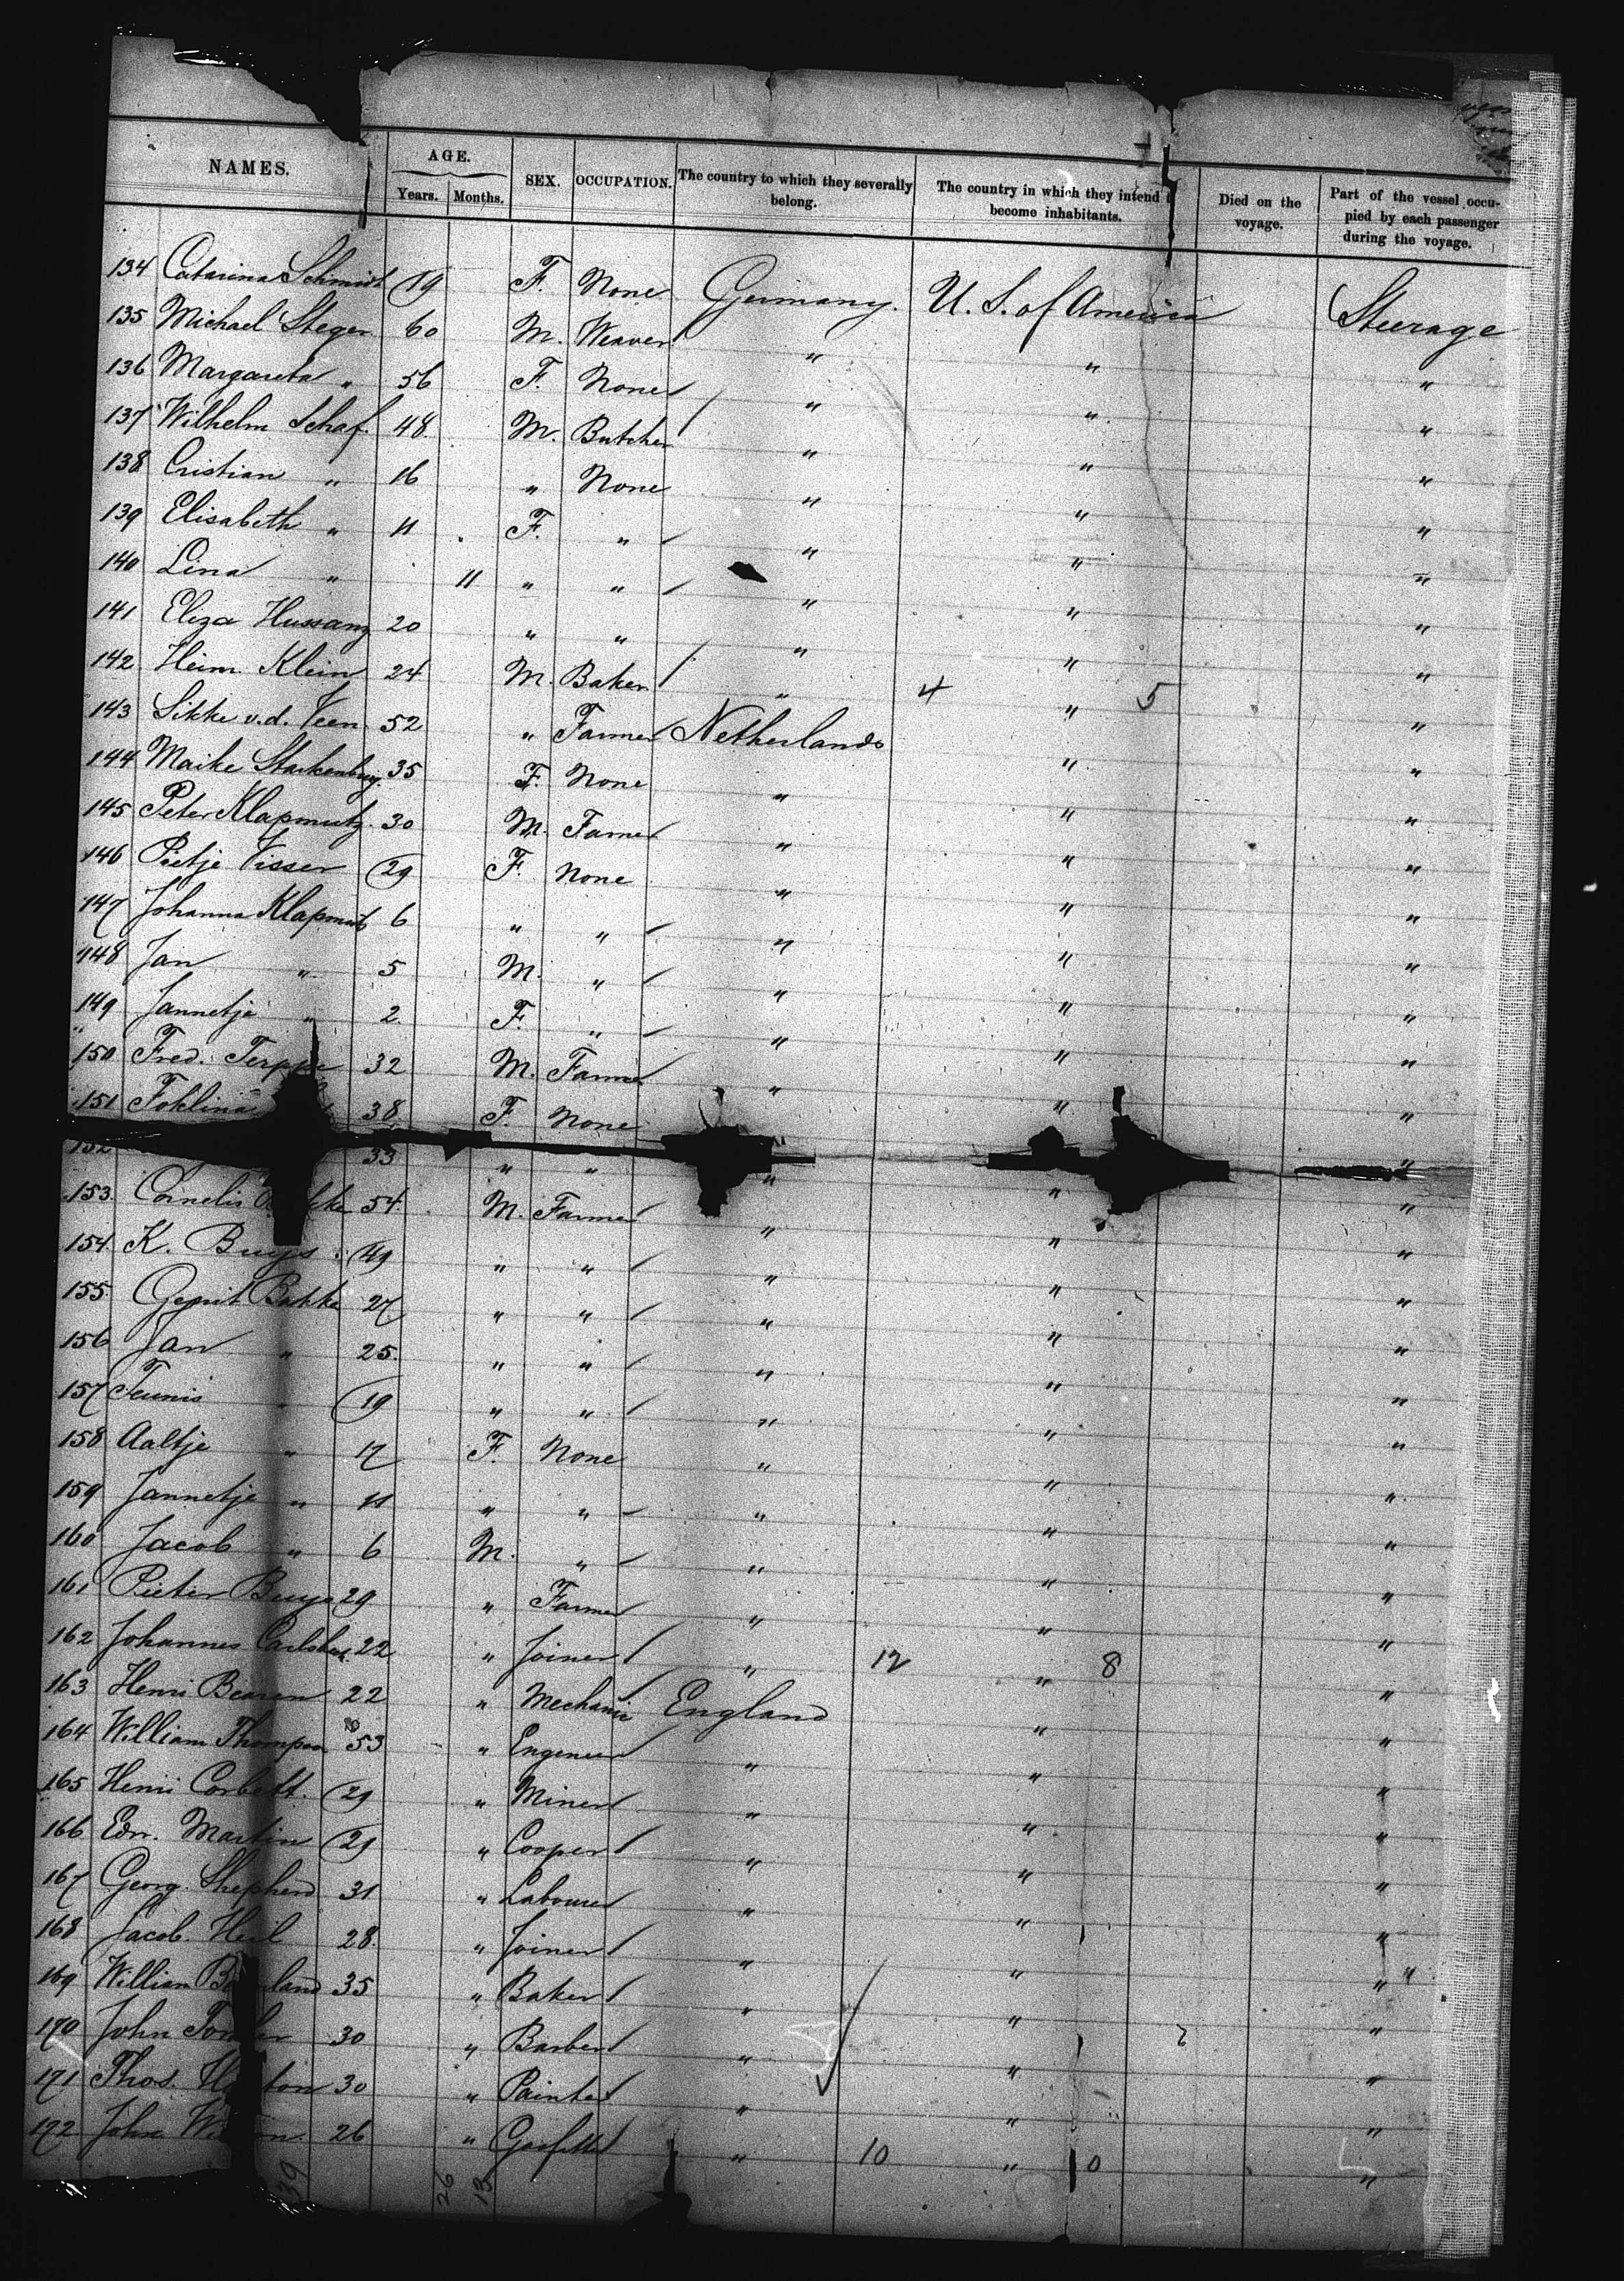 NAMES. AGE. SEX. OCCUPATION. The country to which they severally belong. The country in which they intend become inhabitants. Died on the voyage. Part of the vessel occupied by each passenger during the voyage.
Years. Months.
134 Catarina Schmidt 19 F. None Germany. U. S. of America Steerage
135 Michael Steger 60 M. Weaver " " "
136 Margareta " 56 F. None " " "
137 Wilhelm Schaf. 48. M. Butcher " " "
138 Cristian " 16 " None " " "
139 Elisabeth " 11 F. " " " "
140 Lina " 11 " " " " "
141 Eliza Hussang 20 " " " " "
142 Heinr. Klein 24 M. Baker " 4 " 5 "
143 Sikke v.d. Veen 52 " Farmer Netherlands " "
144 Maike Starkenburg. 35 F. None " " "
145 Peter Klapmutz. 30 M. Farmer " " "
146 Pietje Visser 29 F. None " " "
147 Johanna Klapmutz 6 " " " " "
148 Jan " 5 M. " " " "
149 Jannetje " 2. F. " " " "
150 Fred. Terppe 32 M. Farmer " " "
151 Foklina 38 F. None " "
152 33 " " " " "
153. Cornelis 54. M. Farmer " " "
154. K. Buys. 49 " " " " "
155. Gerrit Bakke 27 " " " " "
156 Jan " 25. " " " " "
157 Teunis " 19 " " " " "
158 Aaltje " 17 F. None " " "
159 Jannetje " 11 " " " " "
160 Jacob " 6 M. " " " "
161 Pieter Buys 29 " Farmer " " "
162 Johannes 22 " Joiner " 12 " 8 "
163 Henri Bearen 22 " Mechanic England " "
164 William Thompson 53 " Engeneer " " "
165 Henri Corbett. 29 " Miner " " "
166 Edn. Martin 29 " Cooper " " "
167 Georg. Shepherd 31 " Labourer " " "
168 Jacob. Heil 28. " Joiner " " "
169 William 35 " Baker " " "
170 John 30 " Barber " " "
171 Thos. 30 " Painter " " "
172 John 26 " Gasfitter " 10 " 0 "
39 26 13